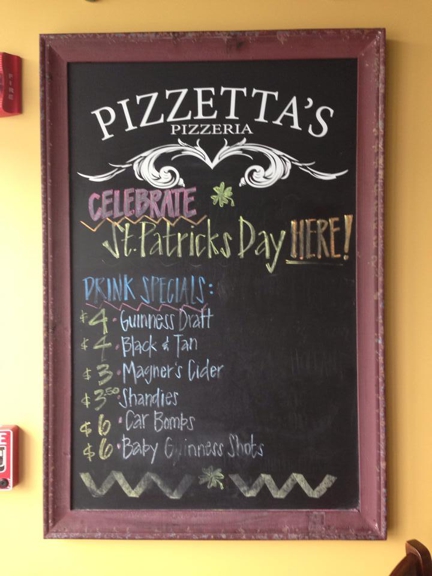 PIZZETTA'S
PIZZERIA
CELEBRATE
St. Patricks Day HERE!
DRINK SPECIALS:
$4 · Guinness Draft
$4 · Black & Tan
$3 · Magner's Cider
$3.50 · Shandies
$6 · Car Bombs
$6 · Baby Guinness Shots